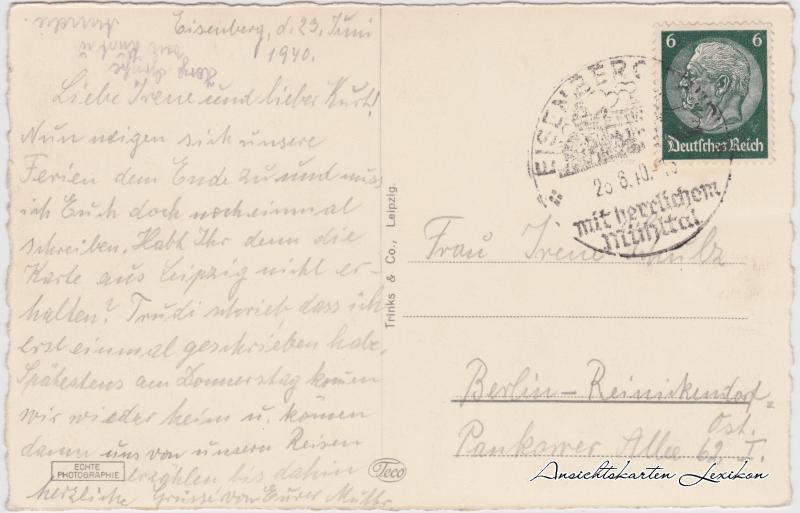 Eisenberg, d. 23. Juni
1940.
Liebe Irene und lieber Kurt!
Nun neigen sich unsere
Ferien dem Ende zu und muss
ich Euch doch noch einmal
schreiben. Habt Ihr denn die
Karte aus Leipzig nicht er-
halten? Trudi schrieb dass ich
erst einmal geschrieben habe.
Spätestens am Donnerstag kommen
wir wieder heim u. können
dann uns von unsern Reisen
erzählen bis dahin
herzliche Grüsse von Eurer Mutter
ECHTE
PHOTOGRAPHIE
Teco
Trinks & Co., Leipzig.
6 6
Deutsches Reich
EISENBERG
mit herrlichem
Mühltal
Frau Irene
Berlin-Reinickendorf
Ost.
Pankower Allee 62 I.
Ansichtskarten Lexikon